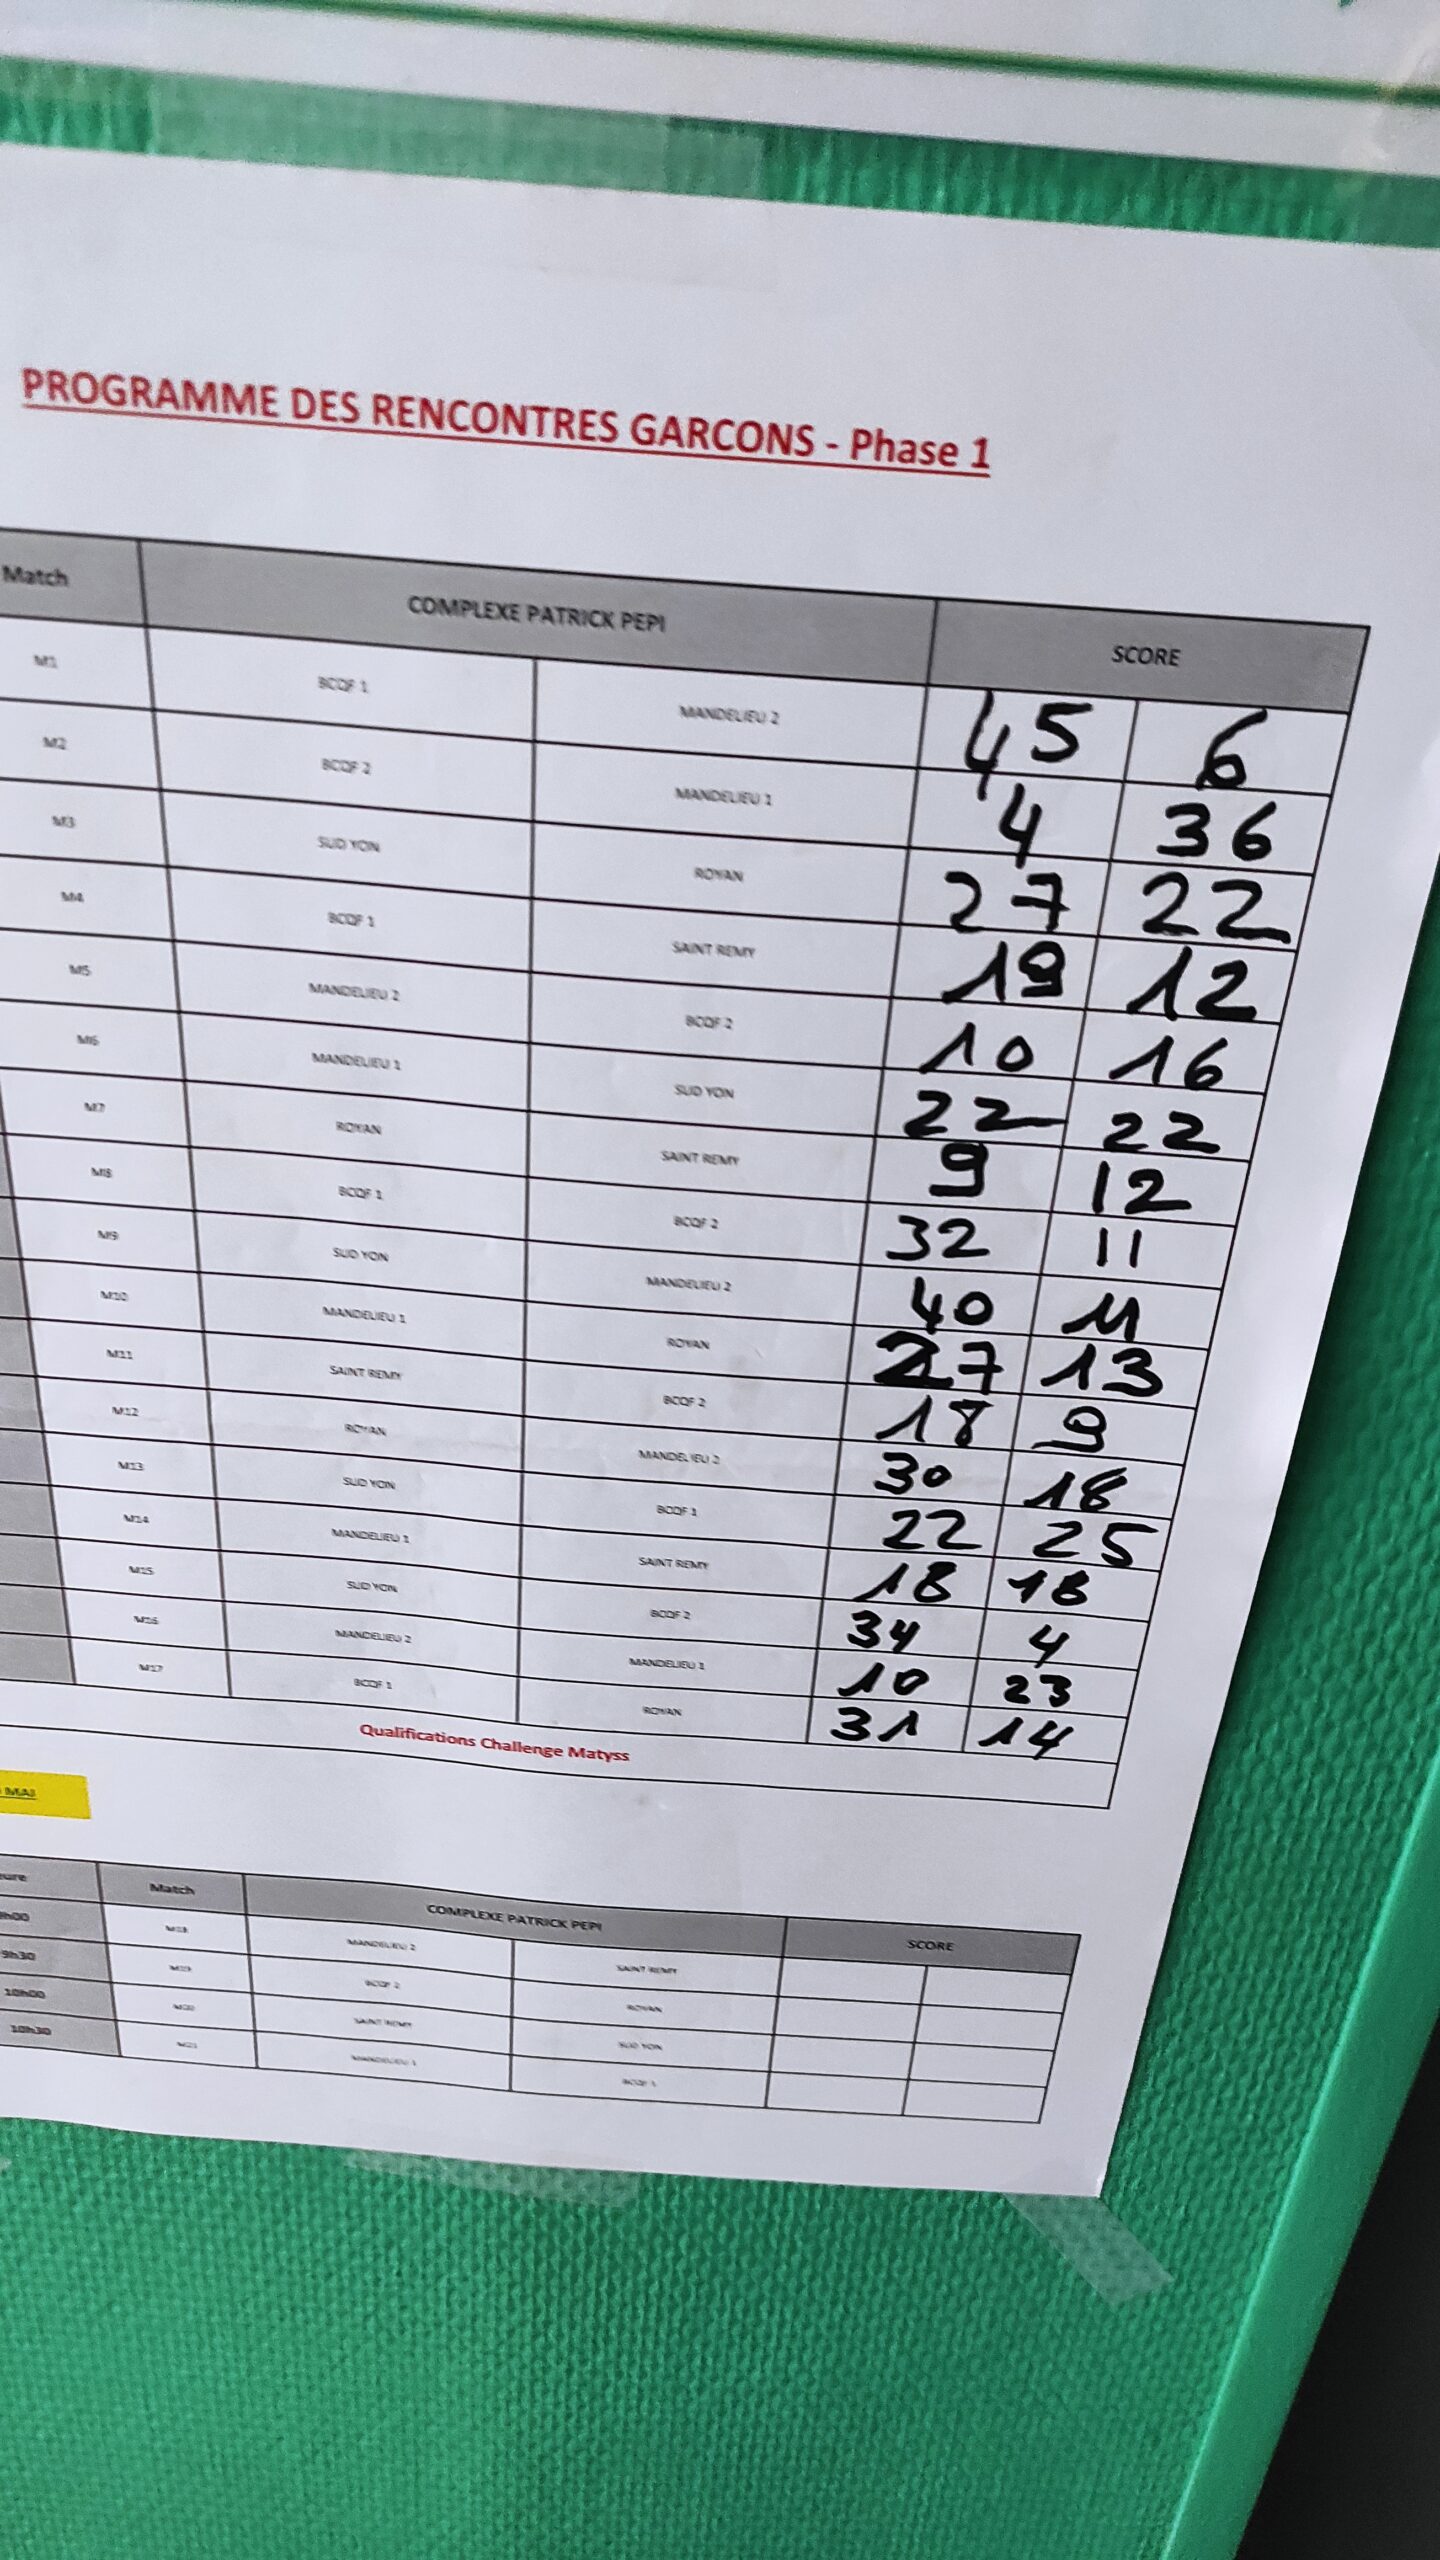 PROGRAMME DES RENCONTRES GARCONS - Phase 1
Match COMPLEXE PATRICK PEPI SCORE
M1 BCQF 1 MANDELIEU 2 45 6
M2 BCQF 2 MANDELIEU 1 4 36
M3 SUD YON ROYAN 27 22
M4 BCQF 1 SAINT REMY 19 12
M5 MANDELIEU 2 BCQF 2 10 16
M6 MANDELIEU 1 SUD YON 22 22
M7 ROYAN SAINT REMY 9 12
M8 BCQF 1 BCQF 2 32 11
M9 SUD YON MANDELIEU 2 40 11
M10 MANDELIEU 1 ROYAN 27 13
M11 SAINT REMY BCQF 2 18 9
M12 ROYAN MANDELIEU 2 30 18
M13 SUD YON BCQF 1 22 25
M14 MANDELIEU 1 SAINT REMY 18 18
M15 SUD YON BCQF 2 34 4
M16 MANDELIEU 2 MANDELIEU 1 10 23
M17 BCQF 1 ROYAN 31 14
Qualifications Challenge Matyss
MAI
Match COMPLEXE PATRICK PEPI SCORE
M18 MANDELIEU 2 SAINT REMY
9h30 M19 BCQF 2 ROYAN
10h00 M20 SAINT REMY SUD YON
10h30 M21 MANDELIEU 1 BCQF 1